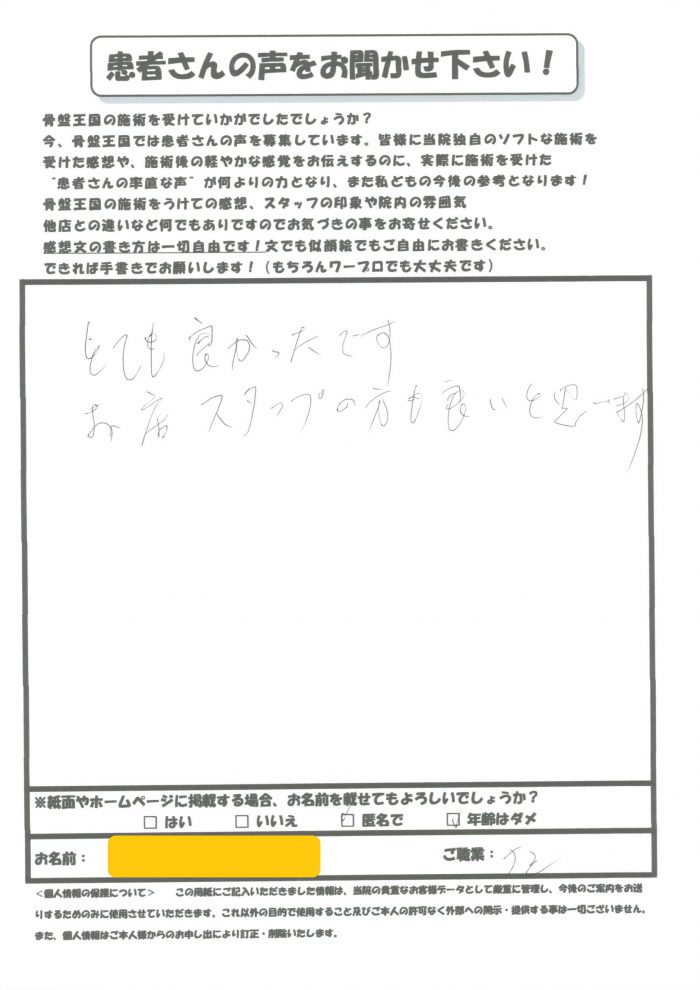 患者さんの声をお聞かせ下さい！
骨盤王国の施術を受けていかがでしたでしょうか？
今、骨盤王国では患者さんの声を募集しています。皆様に当院独自のソフトな施術を
受けた感想や、施術後の軽やかな感覚をお伝えするのに、実際に施術を受けた
"患者さんの率直な声"が何よりの力となり、また私どもの今後の参考となります！
骨盤王国の施術をうけての感想、スタッフの印象や院内の雰囲気
他店との違いなど何でもありですのでお気づきの事をお寄せください。
感想文の書き方は一切自由です！文でも似顔絵でもご自由にお書きください。
できれば手書きでお願いします！（もちろんワープロでも大丈夫です）
とても良かったです
お店 スタッフの方も良いと思います
※紙面やホームページに掲載する場合、お名前を載せてもよろしいでしょうか？
□ はい □ いいえ ☑ 匿名で ☑ 年齢はダメ
お名前： ご職業：
＜個人情報の保護について＞ この用紙にご記入いただきました情報は、当院の貴重なお客様データとして厳重に管理し、今後のご案内をお送
りするためのみに使用させていただきます。これ以外の目的で使用すること及びご本人の許可なく外部への開示・提供する事は一切ございません。
また、個人情報はご本人様からのお申し出により訂正・削除いたします。